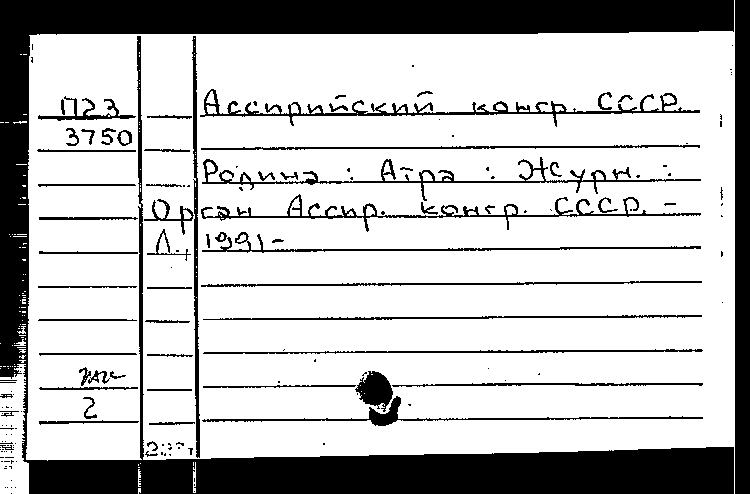 П23 Ассирийский конгр. СССР.
3750
Родина : Атра : Журн. :
Орган Ассир. конгр. СССР. –
Л., 1991–
2